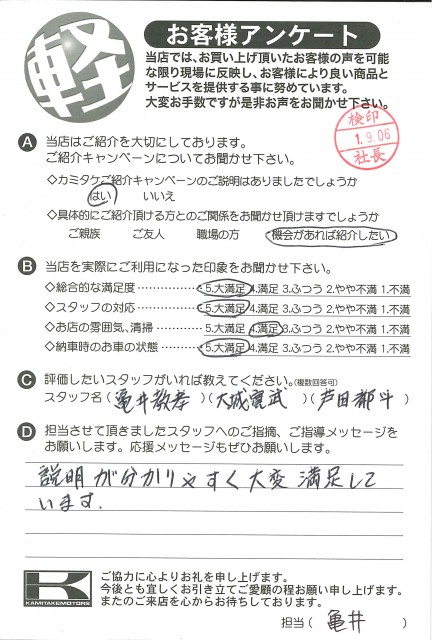 軽
お客様アンケート
当店では、お買い上げ頂いたお客様の声を可能
な限り現場に反映し、お客様により良い商品と
サービスを提供する事に努めています。
大変お手数ですが是非お声をお聞かせ下さい。
検印
1.9.06
社長
A 当店はご紹介を大切にしております。
ご紹介キャンペーンについてお聞かせ下さい。
◇カミタケご紹介キャンペーンのご説明はありましたでしょうか
はい いいえ
◇具体的にご紹介頂ける方とのご関係をお聞かせ頂けますでしょうか
ご親族 ご友人 職場の方 機会があれば紹介したい
B 当店を実際にご利用になった印象をお聞かせ下さい。
◇総合的な満足度 5.大満足 4.満足 3.ふつう 2.やや不満 1.不満
◇スタッフの対応 5.大満足 4.満足 3.ふつう 2.やや不満 1.不満
◇お店の雰囲気、清掃 5.大満足 4.満足 3.ふつう 2.やや不満 1.不満
◇納車時のお車の状態 5.大満足 4.満足 3.ふつう 2.やや不満 1.不満
C 評価したいスタッフがいれば教えてください。(複数回答可)
スタッフ名(亀井 )(大城 武)(芦田都斗)
D 担当させて頂きましたスタッフへのご指摘、ご指導メッセージを
お願いします。応援メッセージもぜひお願いします。
説明が分かりやすく大変満足して
います.
K
KAMITAKEMOTORS
ご協力に心よりお礼を申し上げます。
今後とも宜しくお引き立てご愛顧の程お願い申し上げます。
またのご来店を心からお待ちしております。
担当( 亀井 )